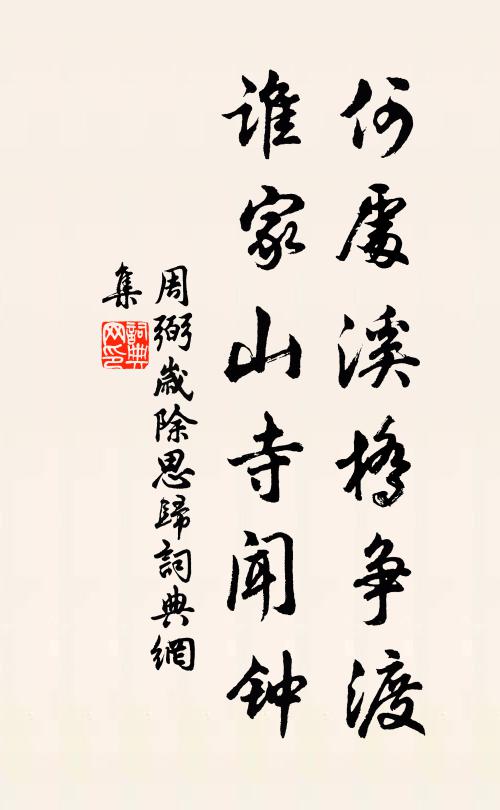 何處溪橋争渡
谁家山寺闻钟
周弼歲除思歸詞典網
集
詞典网印